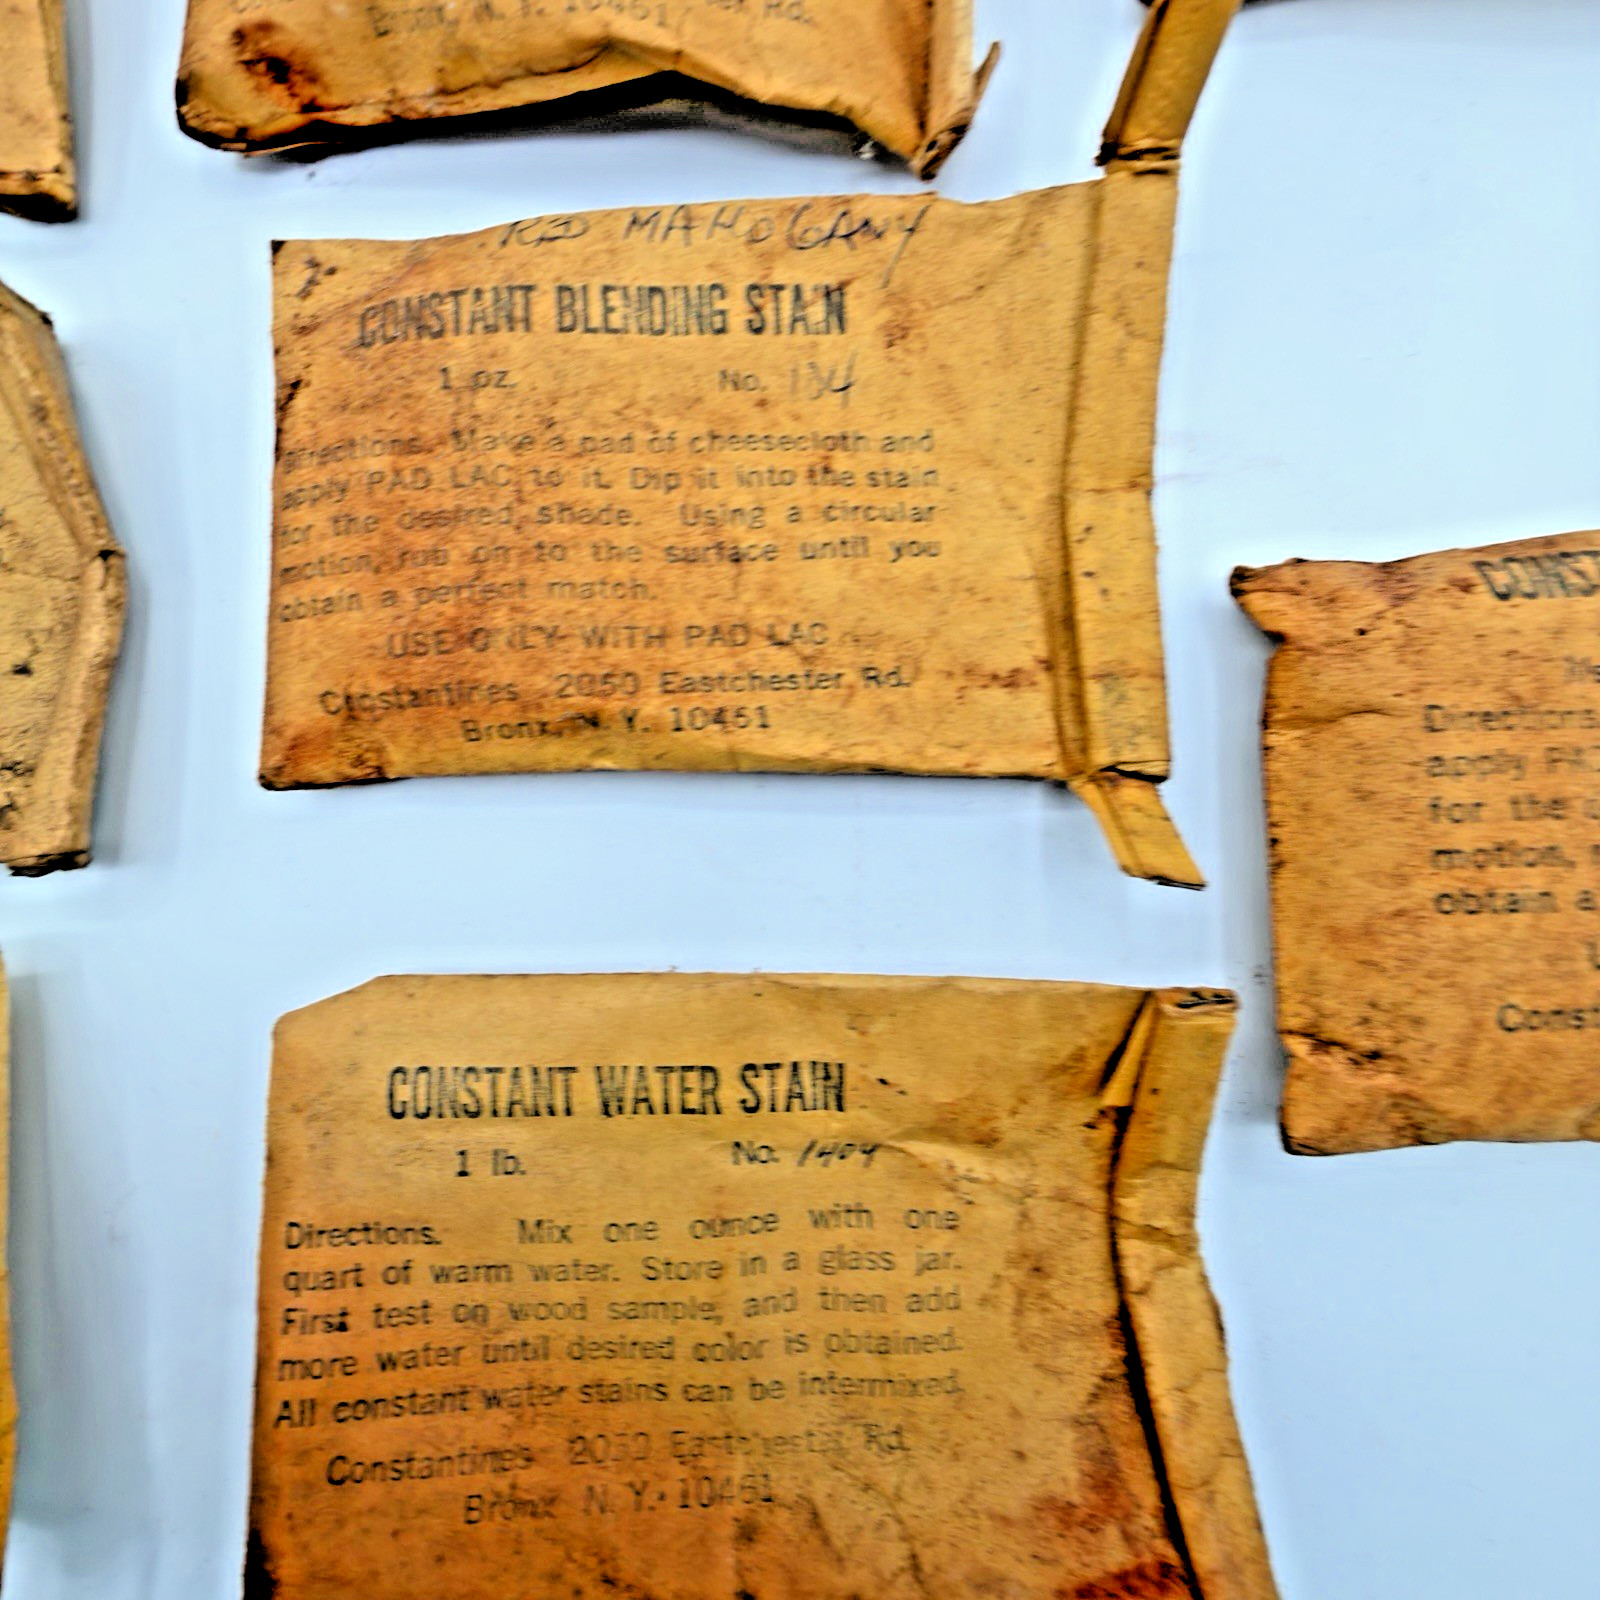 Bronx, N. Y. 10461
Rd.
RED MAHOGANY
CONSTANT BLENDING STAIN
1 oz. No. 134
Directions. Make a pad of cheesecloth and
apply PAD LAC to it. Dip it into the stain
for the desired shade. Using a circular
motion, rub on to the surface until you
obtain a perfect match.
USE ONLY WITH PAD LAC
Constantines 2050 Eastchester Rd.
Bronx, N. Y. 10461
CONSTANT WATER STAIN
1 lb. No. 1404
Directions. Mix one ounce with one
quart of warm water. Store in a glass jar.
First test on wood sample, and then add
more water until desired color is obtained.
All constant water stains can be intermixed.
Constantines 2050 Eastchester Rd.
Bronx N. Y. 10461
CONST
Directions
apply PA
for the
motion,
obtain a
Const